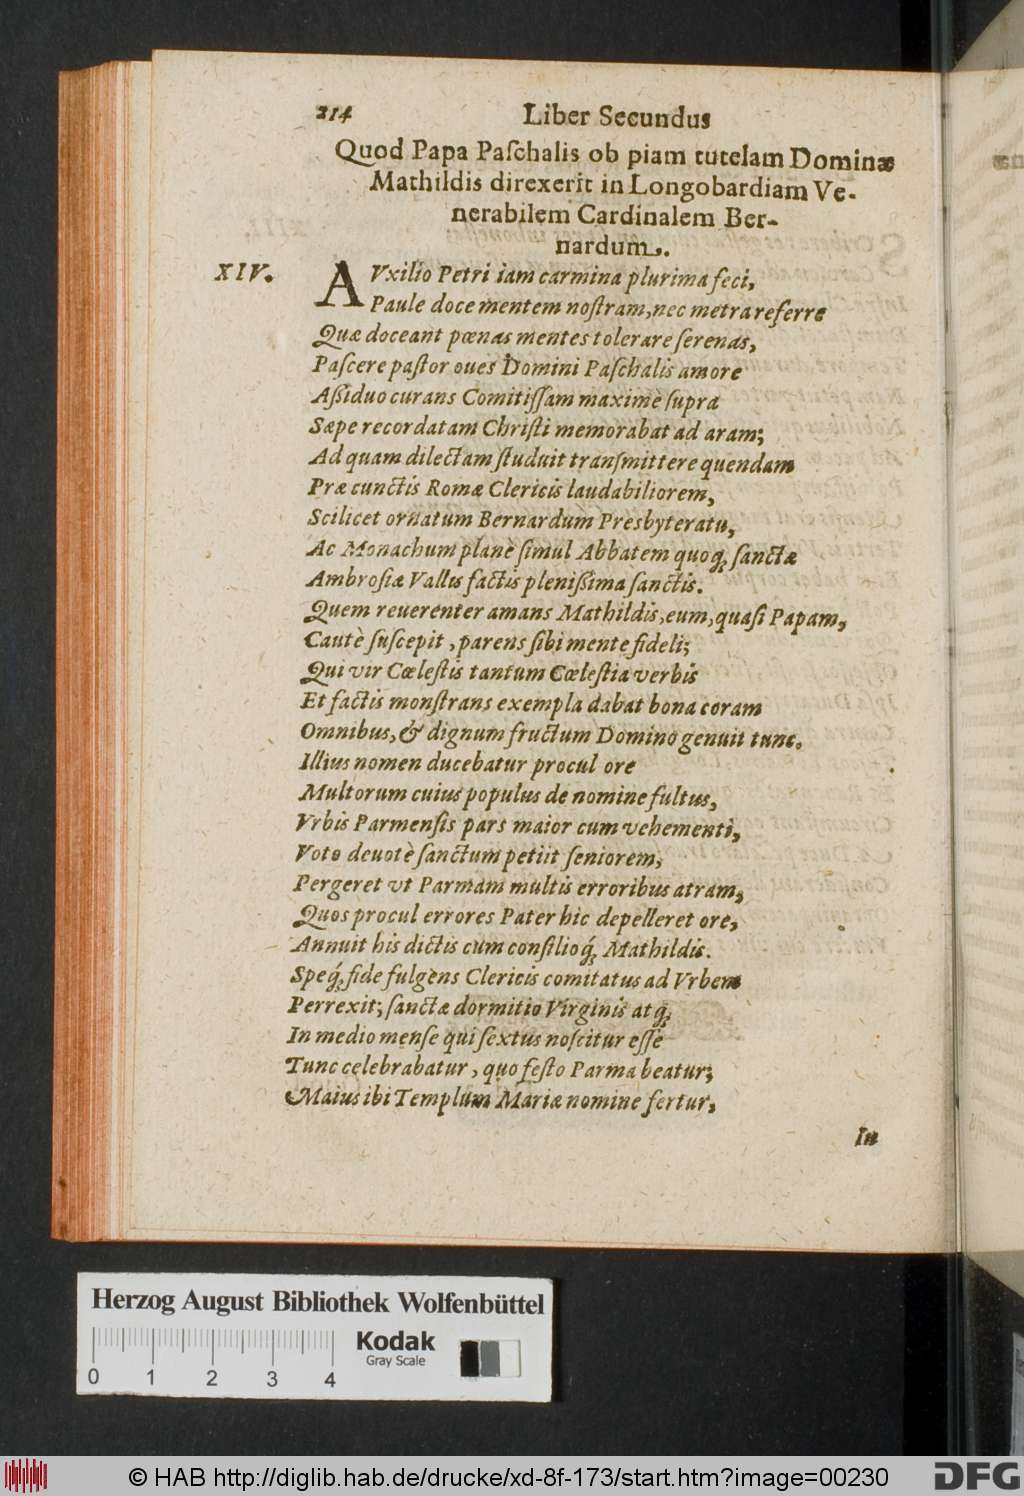 214 Liber Secundus
Quod Papa Paſchalis ob piam tutelam Dominæ
Mathildis direxerit in Longobardiam Ve-
nerabilem Cardinalem Ber-
nardum.
XIV. AVxilio Petri iam carmina plurima feci,
Paule doce mentem noſtram, nec metra referre
Quæ doceant pœnas mentes tolerare ſerenas,
Paſcere paſtor oues Domini Paſchalis amore
Aſſiduo curans Comitiſſam maximè ſupra
Sæpe recordatam Chriſti memorabat ad aram;
Ad quam dilectam ſtuduit tranſmittere quendam
Præ cunctis Romæ Clericis laudabiliorem,
Scilicet ornatum Bernardum Presbyteratu,
Ac Monachum planè ſimul Abbatem quoq; ſanctæ
Ambroſiæ Vallis factis pleniſſima ſanctis.
Quem reuerenter amans Mathildis, eum, quaſi Papam,
Cautè ſuſcepit, parens ſibi mente fideli;
Qui vir Cœleſtis tantum Cœleſtia verbis
Et factis monſtrans exempla dabat bona coram
Omnibus, & dignum fructum Domino genuit tunc.
Illius nomen ducebatur procul ore
Multorum cuius populus de nomine fultus,
Vrbis Parmenſis pars maior cum vehementi,
Voto deuotè ſanctum petiit ſeniorem,
Pergeret vt Parmam multis erroribus atram,
Quos procul errores Pater hic depelleret ore,
Annuit his dictis cum conſilioq́; Mathildis.
Speq́; fide fulgens Clericis comitatus ad Vrbem
Perrexit; ſanctæ dormitio Virginis atq́;
In medio menſe qui ſextus noſcitur eſſe
Tunc celebrabatur, quo feſto Parma beatur;
Maius ibi Templum Mariæ nomine fertur,
In
Herzog August Bibliothek Wolfenbüttel
Kodak
Gray Scale
0 1 2 3 4
© HAB http://diglib.hab.de/drucke/xd-8f-173/start.htm?image=00230
DFG